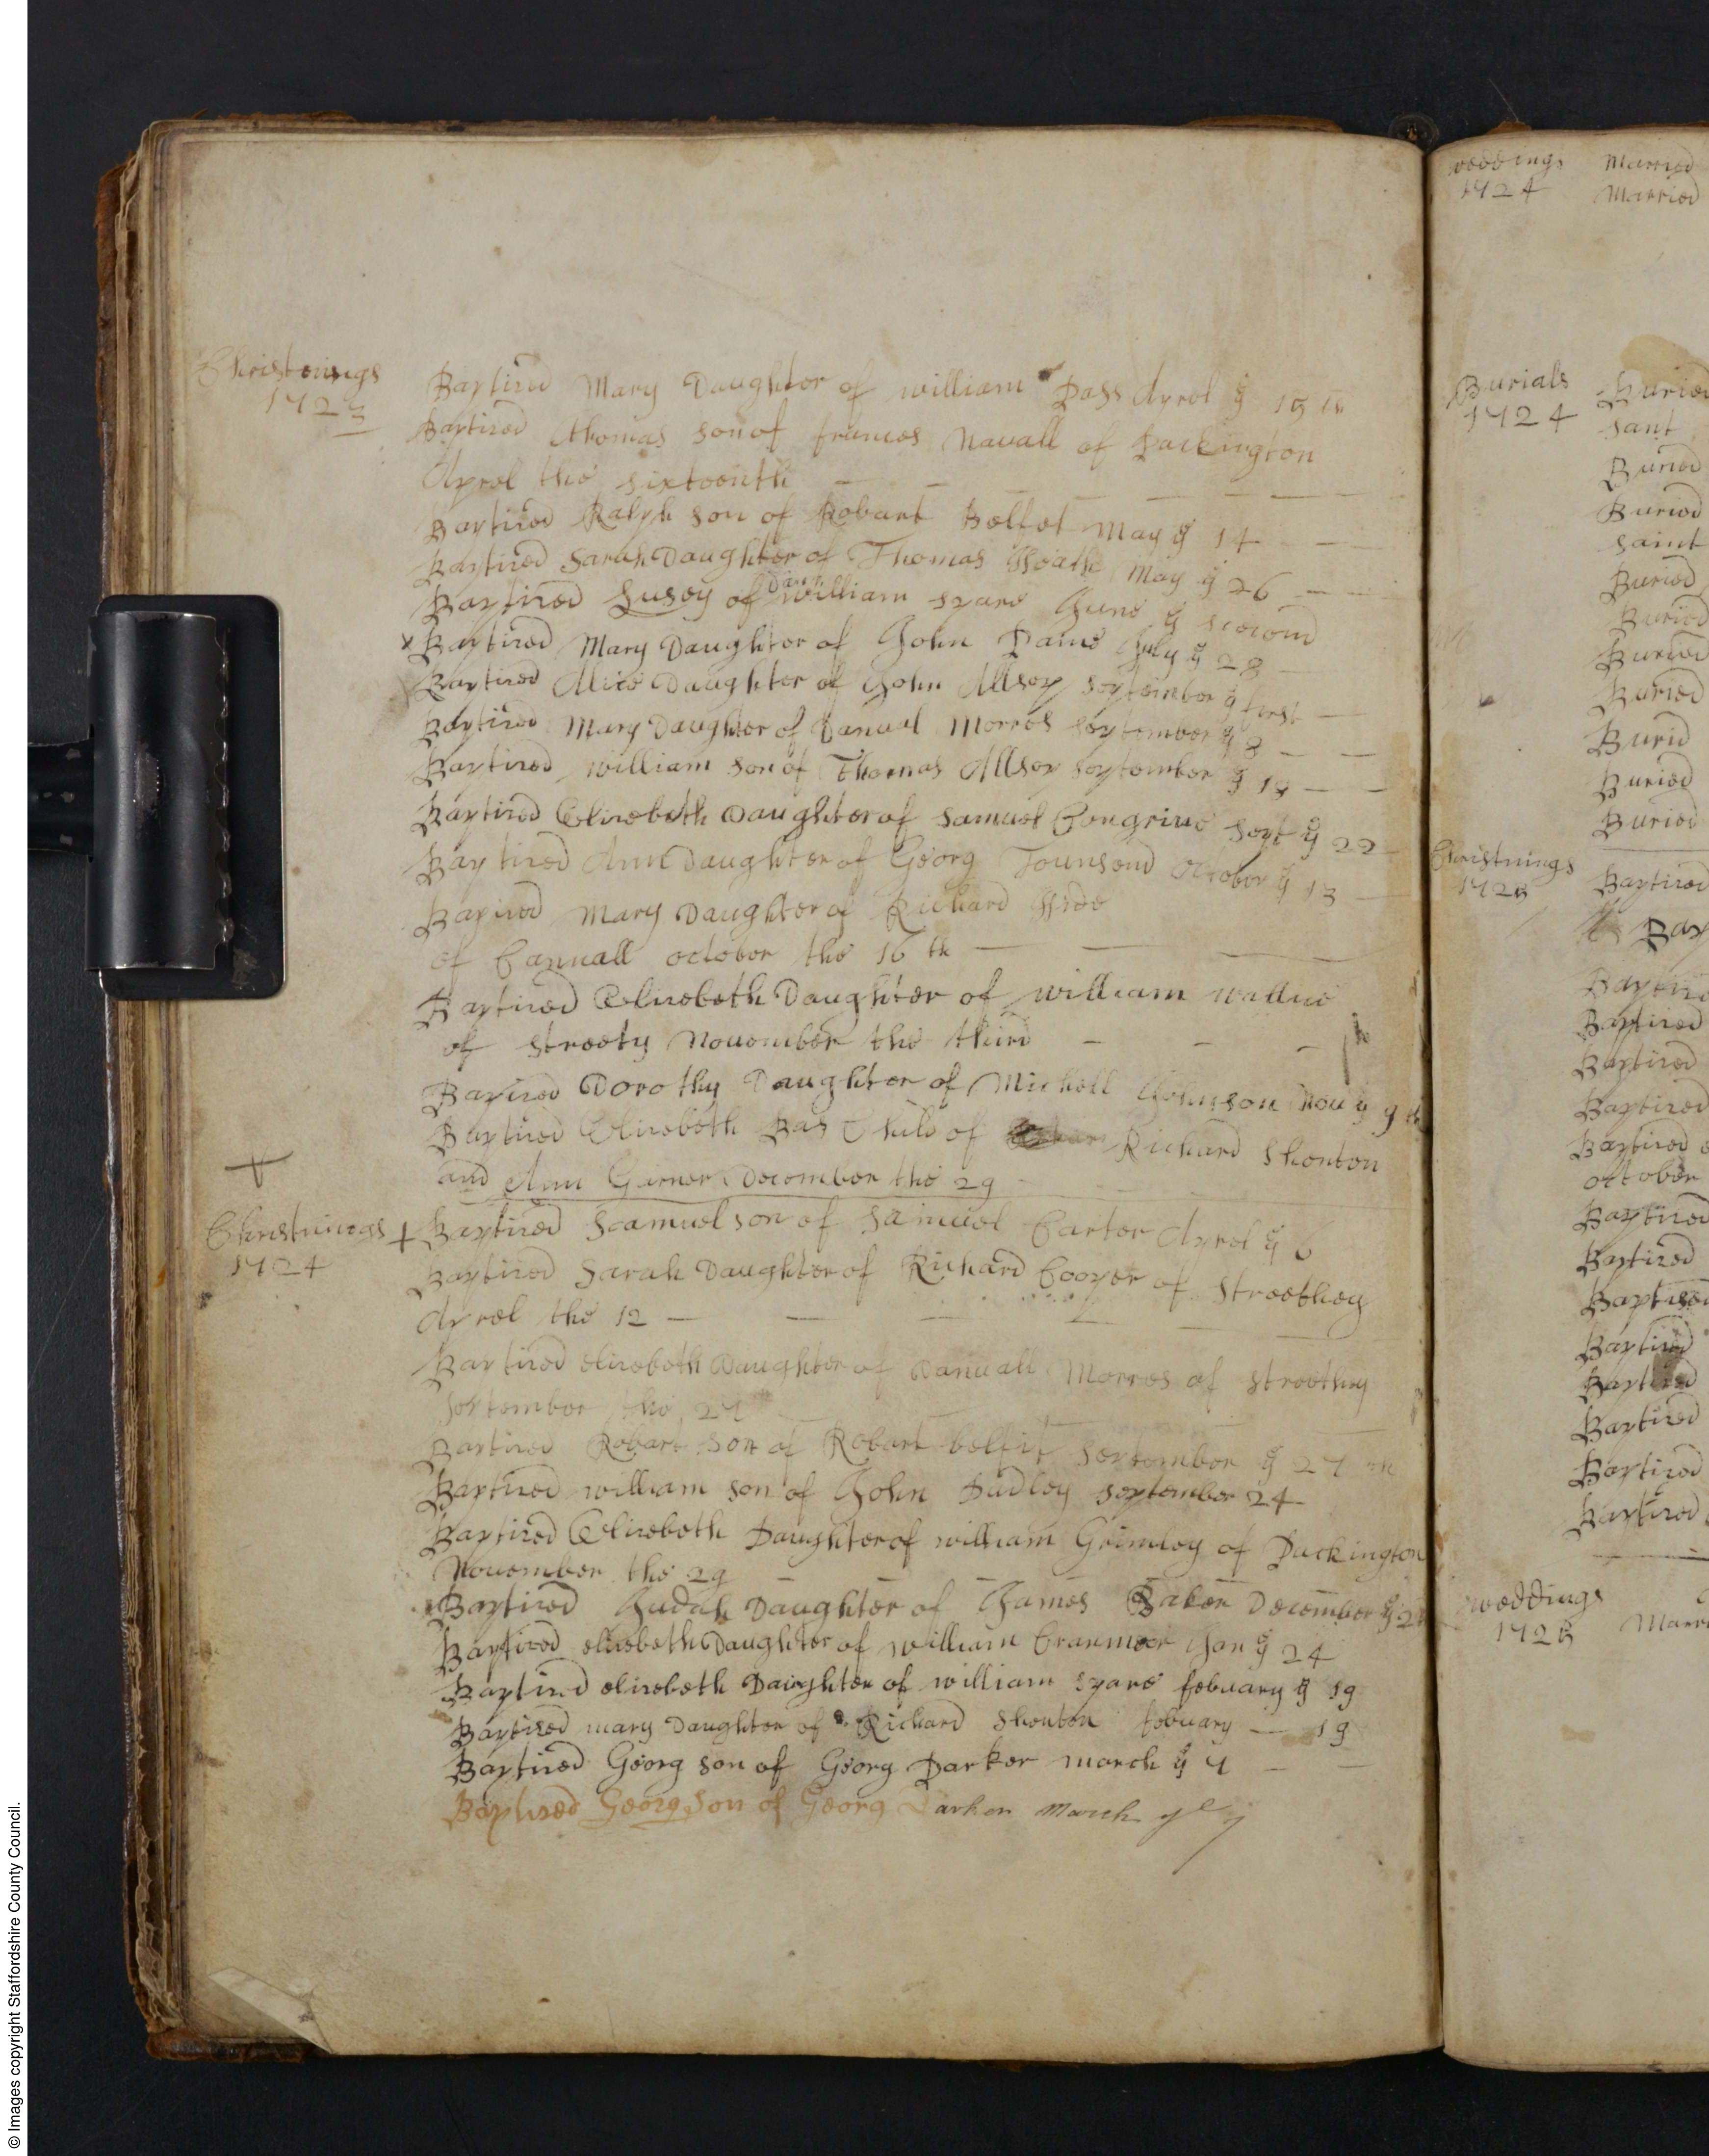 Christenings
1723
Baptized Mary Daughter of william Pass Aprel ye 15 th
Baptized thomas son of frances Navall of Packington
Aprel the sixteenth
Baptized Ralph son of Robart Belfet May ye 14
Baptized Sarah Daughter of Thomas Heath May ye 26
Baptized Lusey Daur of william spare June ye second
x Baptized Mary Daughter of John Dams July ye 28
Baptized Alice Daughter of John Allsop september ye first
Baptized Mary Daughter of Danual Morres september ye 8
Baptized william son of Thomas Allsop september ye 18
Baptized Elizebeth Daughter of Samuel Congrive sept ye 22
Baptized Ann Daughter of Georg Townsend October ye 13
Baptized Mary Daughter of Richard
of Cannall october the 16 th
Baptized Elizebeth Daughter of william
of streety November the third
Baptized Dorothy Daughter of Michell Johnson Nou ye 9 th
Baptized Elizebeth Bas Child of Richard Shenton
and Ann Garner December the 29
+
Christnings
1724
+ Baptized Scamuel son of Samuel Carter Aprel ye 6
Baptized Sarah Daughter of Richard Cooper of streethey
Aprel the 12
Baptized elizebeth Daughter of Danuall Morres of streethey
September the 27th
Baptized Robart son of Robart belfit september ye 27 th
Baptized william son of John Dudley September 24
Baptized Elizebeth Daughter of william Grimley of Packington
November the 29
Baptized Judah Daughter of James Baker December ye
Baptized elizebeth Daughter of william Cranmer Jan ye 24
Baptized elizebeth Daughter of william spare febuary ye 19
Baptized mary Daughter of Richard Shenton febuary 19
Baptized Georg son of Georg Parker march ye 7
Baptised Georg Son of Georg Parker March ye 7
weddings
1724
Married
Married
Burials
1724
Buried
sant
Buried
Buried
saint
Buried
Buried
Buried
Buried
Burid
Buried
Buried
Christnings
1725
Baptized
Bap
Baptized
Baptized
Baptized
Baptized
Baptized
october
Baptized
Baptized
Baptized
Baptized
Baptized
Baptized
Baptized
Baptized
weddings
1725
Marri
© Images copyright Staffordshire County Council.